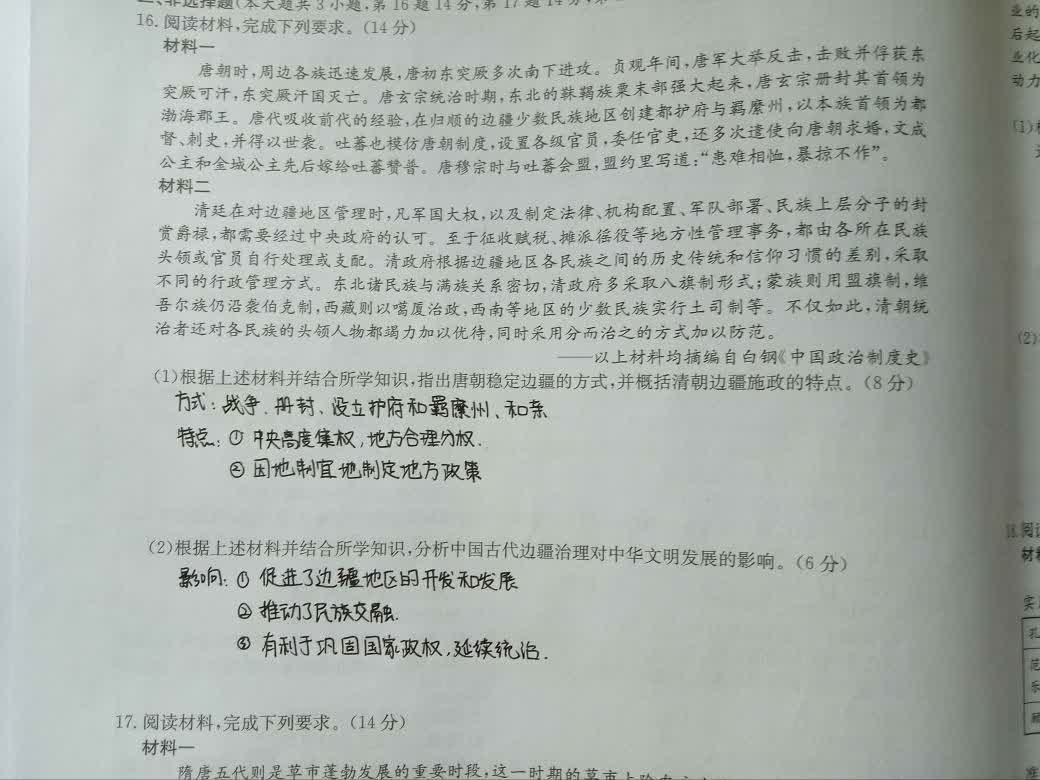 二、非选择题(本大题共3小题,第16题14分,第17题14分,第
16. 阅读材料,完成下列要求。(14分)
材料一
唐朝时,周边各族迅速发展,唐初东突厥多次南下进攻。贞观年间,唐军大举反击,击败并俘获东
突厥可汗,东突厥汗国灭亡。唐玄宗统治时期,东北的靺鞨族粟末部强大起来,唐玄宗册封其首领为
渤海郡王。唐代吸收前代的经验,在归顺的边疆少数民族地区创建都护府与羁縻州,以本族首领为都
督、刺史,并得以世袭。吐蕃也模仿唐朝制度,设置各级官员,委任官吏,还多次遣使向唐朝求婚,文成
公主和金城公主先后嫁给吐蕃赞普。唐穆宗时与吐蕃会盟,盟约里写道:“患难相恤,暴掠不作”。
材料二
清廷在对边疆地区管理时,凡军国大权,以及制定法律、机构配置、军队部署、民族上层分子的封
赏爵禄,都需要经过中央政府的认可。至于征收赋税、摊派徭役等地方性管理事务,都由各所在民族
头领或官员自行处理或支配。清政府根据边疆地区各民族之间的历史传统和信仰习惯的差别,采取
不同的行政管理方式。东北诸民族与满族关系密切,清政府多采取八旗制形式;蒙族则用盟旗制,维
吾尔族仍沿袭伯克制,西藏则以噶厦治政,西南等地区的少数民族实行土司制等。不仅如此,清朝统
治者还对各民族的头领人物都竭力加以优待,同时采用分而治之的方式加以防范。
——以上材料均摘编自白钢《中国政治制度史》
(1)根据上述材料并结合所学知识,指出唐朝稳定边疆的方式,并概括清朝边疆施政的特点。(8分)
方式:战争、册封、设立护府和羁縻州、和亲
特点:① 中央高度集权,地方合理分权.
② 因地制宜地制定地方政策
(2)根据上述材料并结合所学知识,分析中国古代边疆治理对中华文明发展的影响。(6分)
影响:① 促进了边疆地区的开发和发展
② 推动了民族交融.
③ 有利于巩固国家政权,延续统治.
17. 阅读材料,完成下列要求。(14分)
材料一
隋唐五代则是草市蓬勃发展的重要时段,这一时期的草市
业的
后起
业化
动力
(1)
(2)
18.阅
材
孔
范